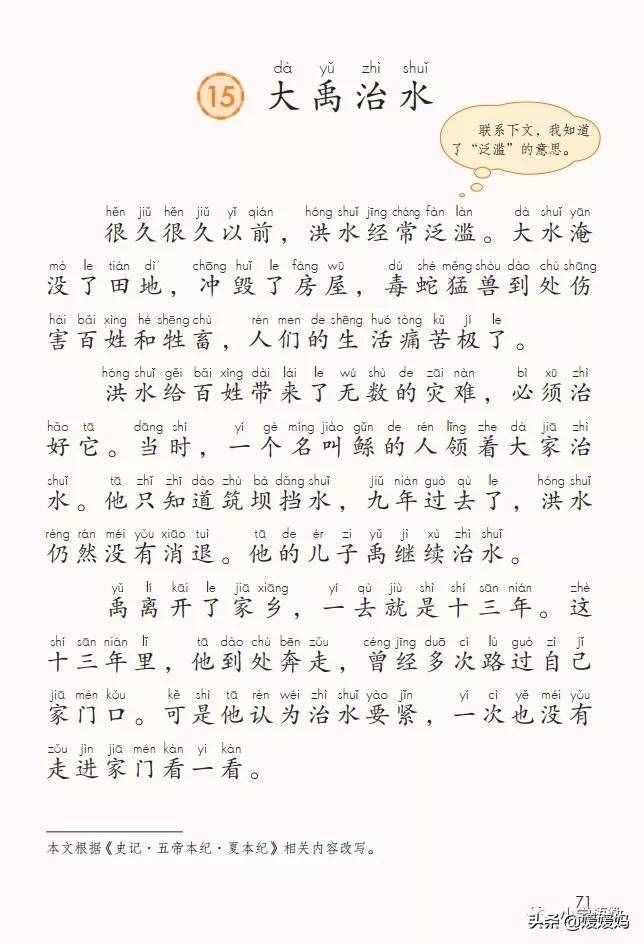 dà yǔ zhì shuǐ
15 大禹治水
联系下文，我知道
了“泛滥”的意思。
hěn jiǔ hěn jiǔ yǐ qián hóng shuǐ jīng cháng fàn làn dà shuǐ yān
很久很久以前，洪水经常泛滥。大水淹
mò le tián dì chōng huǐ le fáng wū dú shé měng shòu dào chù shāng
没了田地，冲毁了房屋，毒蛇猛兽到处伤
hài bǎi xìng hé shēng chù rén men de shēng huó tòng kǔ jí le
害百姓和牲畜，人们的生活痛苦极了。
hóng shuǐ gěi bǎi xìng dài lái le wú shù de zāi nàn bì xū zhì
洪水给百姓带来了无数的灾难，必须治
hǎo tā dāng shí yí gè míng jiào gǔn de rén lǐng zhe dà jiā zhì
好它。当时，一个名叫鲧的人领着大家治
shuǐ tā zhǐ zhī dào zhù bà dǎng shuǐ jiǔ nián guò qù le hóng shuǐ
水。他只知道筑坝挡水，九年过去了，洪水
réng rán méi yǒu xiāo tuì tā de ér zi yǔ jì xù zhì shuǐ
仍然没有消退。他的儿子禹继续治水。
yǔ lí kāi le jiā xiāng yí qù jiù shì shí sān nián zhè
禹离开了家乡，一去就是十三年。这
shí sān nián lǐ tā dào chù bēn zǒu céng jīng duō cì lù guò zì jǐ
十三年里，他到处奔走，曾经多次路过自己
jiā mén kǒu kě shì tā rèn wéi zhì shuǐ yào jǐn yí cì yě méi yǒu
家门口。可是他认为治水要紧，一次也没有
zǒu jìn jiā mén kàn yi kàn
走进家门看一看。
本文根据《史记·五帝本纪·夏本纪》相关内容改写。
71
头条@媛媛妈